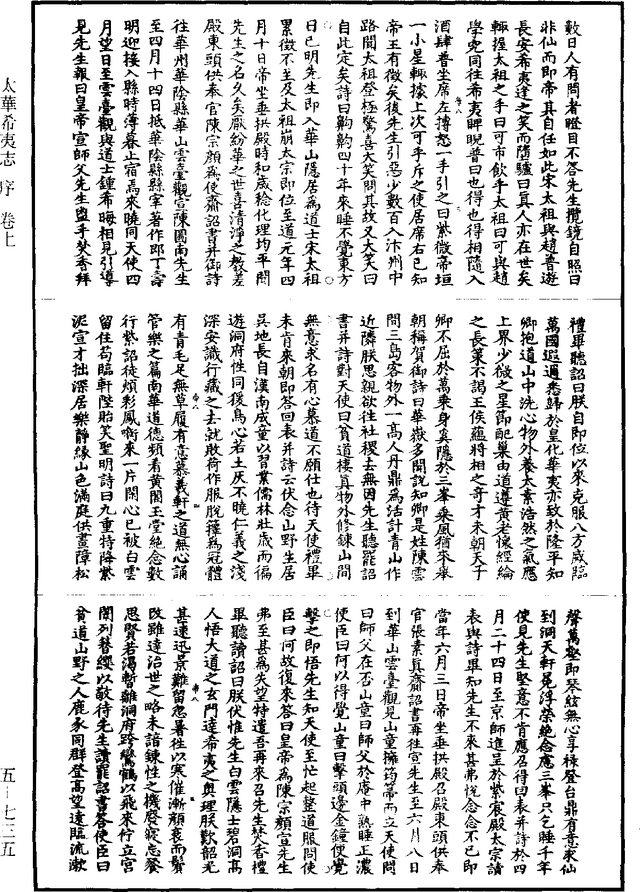 數日人有問者瞪目不答先生攬鏡自照曰
非仙而即帝其自任如此宋太祖與趙普遊
長安希夷逢之笑而墮驢曰眞人亦在世矣
輒握太祖之手曰可市飲乎太祖曰可與趙
學究同往希夷睥睨普曰也得也得相隨入
酒肆普坐席左摶怒一手引之曰紫微帝垣
一小星輒據上次可乎斥之使居席右已知
帝王有徵矣後先生引惡少數百入汴州中
路聞太祖登極驚喜大笑問其故又大笑曰
自此定矣詩曰齁齁四十年來睡不覺東方
日已明先生即入華山隱居爲道士宋太祖
累徵不至及太祖崩太宗即位至道元年四
月十日帝坐垂拱殿時和歲稔化理均平聞
先生之名久矣厭紛華之世喜清淨之教差
殿東頭供奉官陳宗顏爲使齎詔書并御詩
往華州華陰縣華山雲臺觀宣陳圖南先生
至四月十四日抵華陰縣縣宰著作郎丁壽
明迎接入縣時薄暮止宿焉來曉同天使四
月望日至雲臺觀與道士鍾希晦相見引導
見先生報曰皇帝宣師父先生盥手焚香拜
禮畢聽詔曰朕自即位以來克服八方威臨
萬國遐邇悉歸於皇化華夷亦致於隆平知
卿抱道山中洗心物外養太素浩然之氣應
上界少微之星節配巢由道遵黄老懷經綸
之長策不謁王侯蘊將相之奇才未朝天子
卿不屈於萬乘身奚隱於三峯乘風猶來舉
朝稱賀御詩曰華嶽多聞說知卿是姓陳雲
間三島客物外一高人丹鼎爲活計青山作
近隣朕思親欲往社稷去無因先生聽罷詔
書并詩對天使曰貧道棲眞物外修鍊山間
無意求名有心慕道不願仕也待天使禮畢
未肯來朝即答回表并詩云伏念山野生居
吳地長自漢南成童以習業儒林壯歲而徧
遊洞府性同猨鳥心若土灰不曉仁義之淺
深安識行藏之去就敗荷作服脫籜爲冠體
有青毛足無草履有意慕羲軒之道無心誦
管樂之篇南華道德頻看黄閣玉堂絶念數
行紫詔徒煩彩鳳啣來一片閑心已被白雲
留住苟臨軒陛貽笑聖明詩曰九重特降紫
泥宣才拙深居樂靜緣山色滿庭供畫障松
聲萬壑即琴絃無心享祿登台鼎有意求仙
到洞天軒冕浮榮絶念慮三峯只乞睡千年
使見先生堅意不肯應召得回表并詩於四
月二十四日至京師進呈於紫宸殿太宗讀
表與詩畢知先生不來甚弗悅念念不已即
當年六月三日帝坐垂拱殿召殿東頭供奉
官張素眞齎詔書再徃宣先生至六月八日
到華山雲臺觀見山童擁篲箒而立天使問
曰師父在否山童曰師父於庵中熟睡正濃
使臣曰何以得覺山童曰擊頭邊金鐘便覺
擊之即悟先生知天使至忙起整道服問使
臣曰何故復來答曰皇帝爲陳宗顏宣先生
弗至甚爲失望特遣吾再來召先生焚香禮
畢聽讀詔曰朕伏惟先生白雲隱士碧洞高
人悟大道之玄門達希夷之奥理朕歎韶光
甚速迅景難留忽暑徃以寒催漸顏衰而鬢
改雖達治世之略未諳鍊性之機廢寢忘餐
思賢若渴暫離洞府跨鸞鶴以飛來佇立宮
闈列簪纓以敬待先生讀罷詔書答使臣曰
貧道山野之人鹿豕同群登高望遠臨流漱
太華希夷志 序 卷上
五—七三五